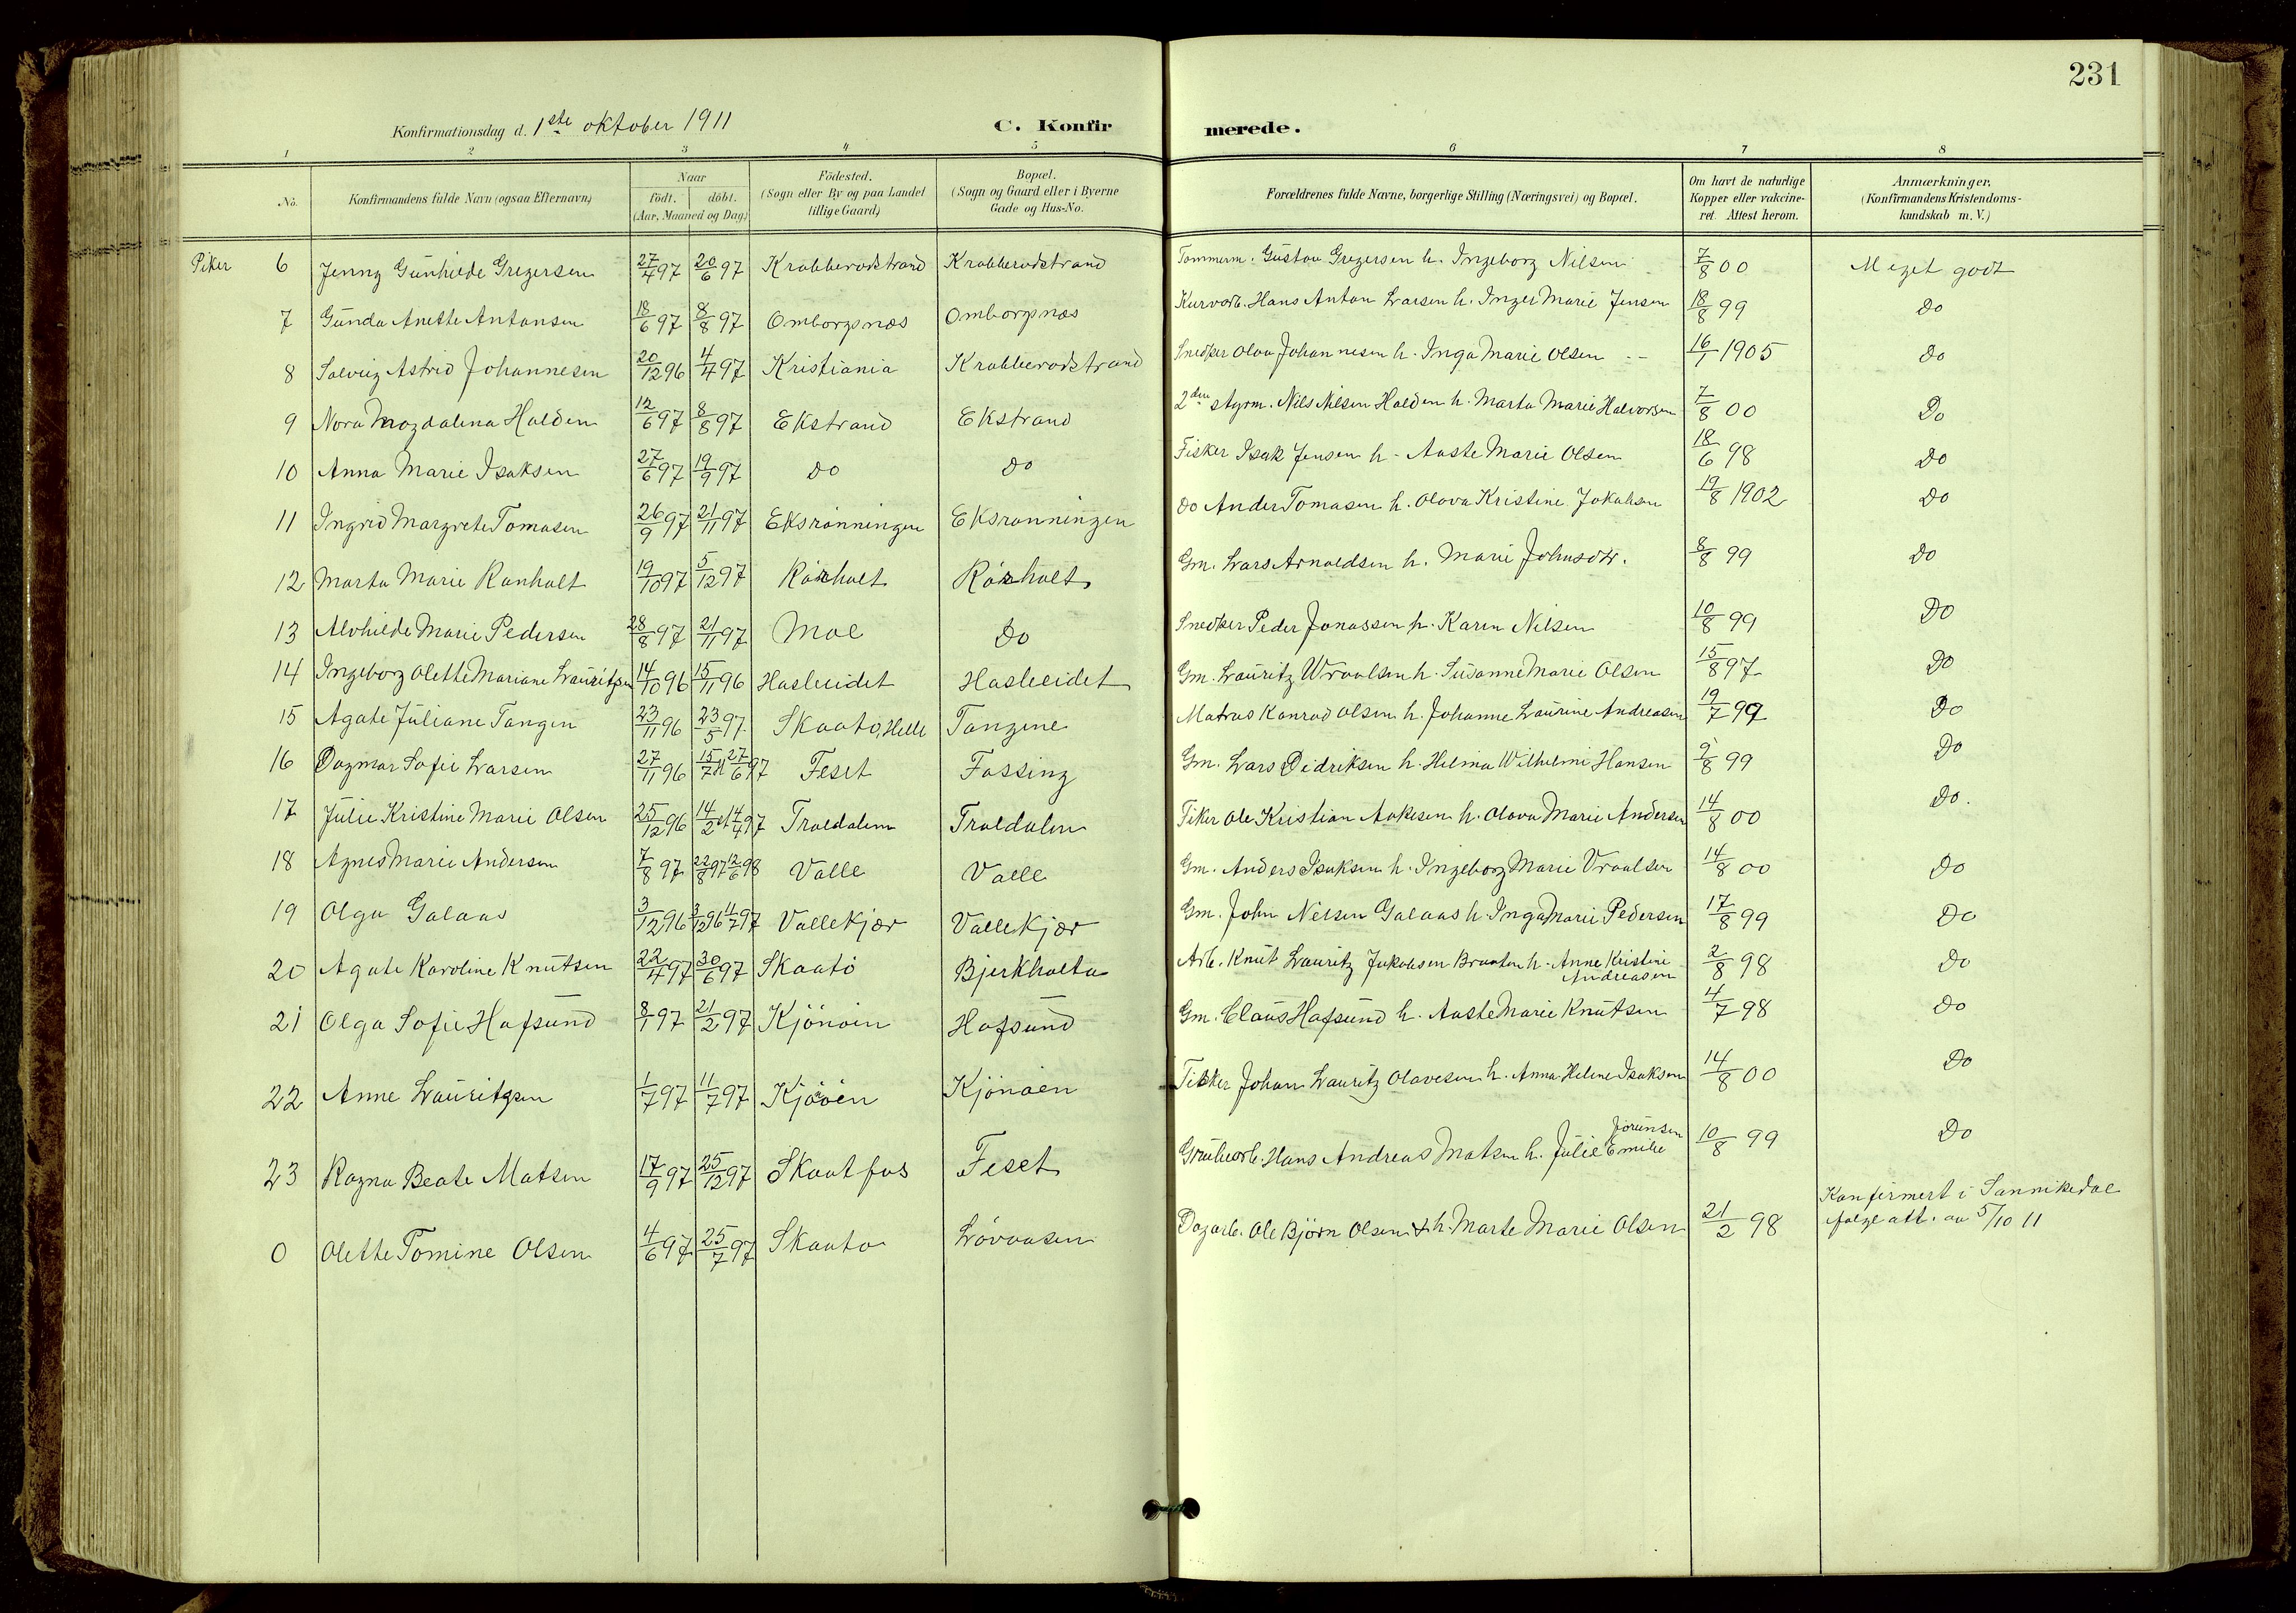 231
Konfirmationsdag d. 1ste oktober 1911 C. Konfirmerede.
1 2 3 4 5 6 7 8
No. Konfirmandens fulde Navn (ogsaa Efternavn) Naar födt. döbt. (Aar, Maaned og Dag) Födested. (Sogn eller By og paa Landet tillige Gaard) Bopæl. (Sogn og Gaard eller i Byerne Gade og Hus-No. Forældrenes fulde Navne, borgerlige Stilling (Næringsvei) og Bopæl. Om havt de naturlige Kopper eller vakcineret. Attest herom. Anmærkninger. (Konfirmandens Kristendomskundskab m. V.)
Piker 6 Jenny Gunhilde Gregersen 27/4 97 20/6 97 Krabberodstrand Krabberodstrand Tommerm. Gustav Gregersen h. Ingeborg Nilsen 7/8 00 Meget godt
7 Gunda Anette Antonsen 18/6 97 8/8 97 Omborgsnæs Omborgsnæs Kurvarb. Hans Anton Larsen h. Inger Marie Jensen 18/8 99 Do
8 Solveig Astrid Johannesen 20/12 96 4/4 97 Kristiania Krabberodstrand Snedker Olav Johannesen h. Inga Marie Olsen 16/1 1905 Do
9 Nora Magdalena Halden 12/6 97 8/8 97 Ekstrand Ekstrand 2den styrm. Nils Nilsen Halden h. Marta Marie Halvorsen 7/8 00 Do
10 Anna Marie Isaksen 27/6 97 19/9 97 Do Do Fisker Isak Jensen h. Aaste Marie Olsen 18/6 98 Do
11 Ingrid Margrete Tomasen 26/9 97 21/11 97 Eksrønningen Eksrønningen Do Ander Tomasen h. Olava Kristine Jakobsen 19/8 1902 Do
12 Marta Marie Rønholt 19/10 97 5/12 97 Rønholt Rønholt Gm. Lars Arnoldsen h. Marie Johnsdtr. 8/8 99 Do
13 Alvhilde Marie Pedersen 28/8 97 21/11 97 Moe Do Snedker Peder Jonassen h. Karen Nilsen 10/8 99 Do
14 Ingeborg Olette Mariane Lauritzsen 14/10 96 15/11 96 Hasleeidet Hasleeidet Gm. Lauritz Wraalsen h. Susanne Marie Olsen 15/8 97 Do
15 Agate Juliane Tangen 23/11 96 23/5 97 Skaatø, Helle Tangene Matros Konrad Olsen h. Johanne Laurine Andreasen 19/7 99 Do
16 Dagmar Sofie Larsen 27/11 96 15/7 27/6 97 Feset Fossing Gm. Lars Didriksen h. Helma Wilhelmi Hansen 9/8 99 Do
17 Julie Kristine Marie Olsen 25/12 96 14/2 4/4 97 Traldalen Traldalen Fiker Ole Kristian Aakesen h. Olava Marie Andersen 14/8 00 Do.
18 Agnes Marie Andersen 7/8 97 22/8 97 12/6 98 Valle Valle Gm. Anders Isaksen h. Ingeborg Marie Vraalsen 14/8 00 Do
19 Olga Galaas 3/12 96 3/12 96 11/7 97 Vallekjær Vallekjær Gm. John Nelsen Galaas h. Inga Marie Pedersen 17/8 99 Do
20 Agate Karoline Knutsen 22/4 97 30/6 97 Skaatö Bjerkholta Arb. Knut Lauritz Jakobsen Braaten h. Anne Kristine Andreasen 2/8 98 Do
21 Olga Sofie Hafsund 8/1 97 21/2 97 Kjönöin Hafsund Gm. Claus Hafsund h. Aaste Marie Knutsen 4/7 98 Do
22 Anne Lauritzsen 1/7 97 11/7 97 Kjööen Kjönöen Fisker Johan Lauritz Olavesen h. Anna Helene Isaksen 14/8 00 Do
23 Ragna Beate Matsen 17/9 97 25/12 97 Skaatfos Feset Grubearb. Hans Andreas Matsen h. Julie Emilie Jörensen 10/8 99 Do
0 Olette Tomine Olsen 4/6 97 25/7 97 Skaato Lövaasen Dagarb. Ole Björn Olsen & h. Marte Marie Olsen 21/2 98 Konfirmert i Sannikedal følge att. av 5/10 11